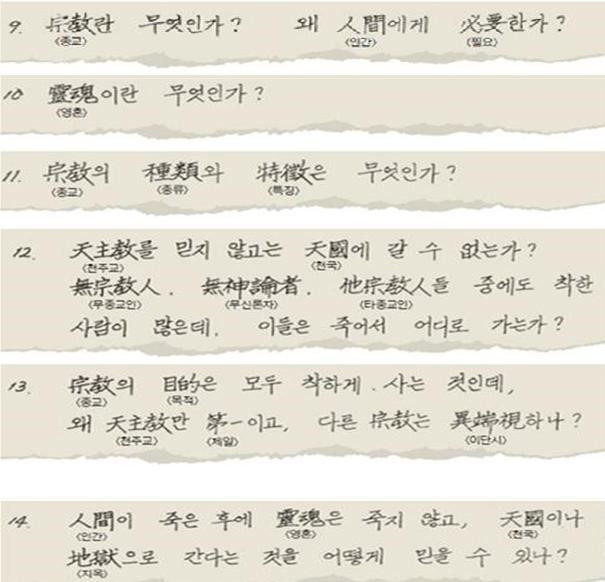 9. 宗敎란 무엇인가? 왜 人間에게 必要한가?
(종교) (인간) (필요)
10 靈魂이란 무엇인가?
(영혼)
11. 宗敎의 種類와 特徵은 무엇인가?
(종교) (종류) (특징)
12. 天主敎를 믿지 않고는 天國에 갈 수 없는가?
(천주교) (천국)
無宗敎人, 無神論者, 他宗敎人들 중에도 착한
(무종교인) (무신론자) (타종교인)
사람이 많은데, 이들은 죽어서 어디로 가는가?
13. 宗敎의 目的은 모두 착하게 사는 것인데,
(종교) (목적)
왜 天主敎만 第一이고, 다른 宗敎는 異端視하나?
(천주교) (제일) (이단시)
14. 人間이 죽은 후에 靈魂은 죽지 않고, 天國이나
(인간) (영혼) (천국)
地獄으로 간다는 것을 어떻게 믿을 수 있나?
(지옥)